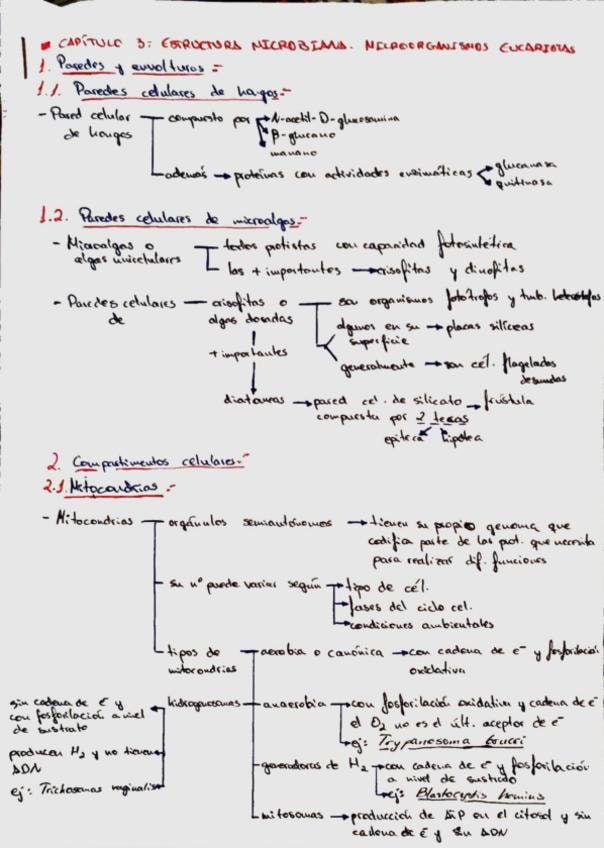 CAPÍTULO 3: ESTRUCTURA MICROBIANA. MICROORGANISMOS EUCARIOTAS
1. Paredes y envolturas :-
1.1. Paredes celulares de hongos:-
- Pared celular de hongos
compuesto por
N-acetil-D-glucosamina
β-glucano
manano
además → proteínas con actividades enzimáticas
glucanasa
quitinasa
1.2. Paredes celulares de microalgas:-
- Microalgas o algas unicelulares
todos protistas con capacidad fotosintética
las + importantes → crisofitas y dinofitas
- Paredes celulares de
crisofitas o algas doradas
son organismos fotótrofos y tmb. heterótrofos
algunos en su superficie → placas silíceas
generalmente → son cél. flageladas desnudas
+ importantes
diatomeas → pared cel. de silicato → frústula
compuesta por 2 tecas
epiteca hipoteca
2. Compartimentos celulares:-
2.1. Mitocondrias :-
- Mitocondrias
orgánulos semiautónomos → tienen su propio genoma que
codifica parte de las prot. que necesita
para realizar dif. funciones
su nº puede variar según
tipo de cél.
fases del ciclo cel.
condiciones ambientales
tipos de mitocondrias
aerobia o canónica → con cadena de e⁻ y fosforilación
oxidativa
anaerobia → con fosforilación oxidativa y cadena de e⁻
el O₂ no es el últ. aceptor de e⁻
ej: Trypanosoma brucei
hidrogenosomas
sin cadena de e⁻ y
con fosforilación a nivel
de sustrato
producen H₂ y no tienen
ADN
ej: Trichosomas vaginalis
generadoras de H₂ → con cadena de e⁻ y fosforilación
a nivel de sustrato
ej: Blastocystis hominis
mitosomas → producción de ATP en el citosol y sin
cadena de e⁻ y sin ADN